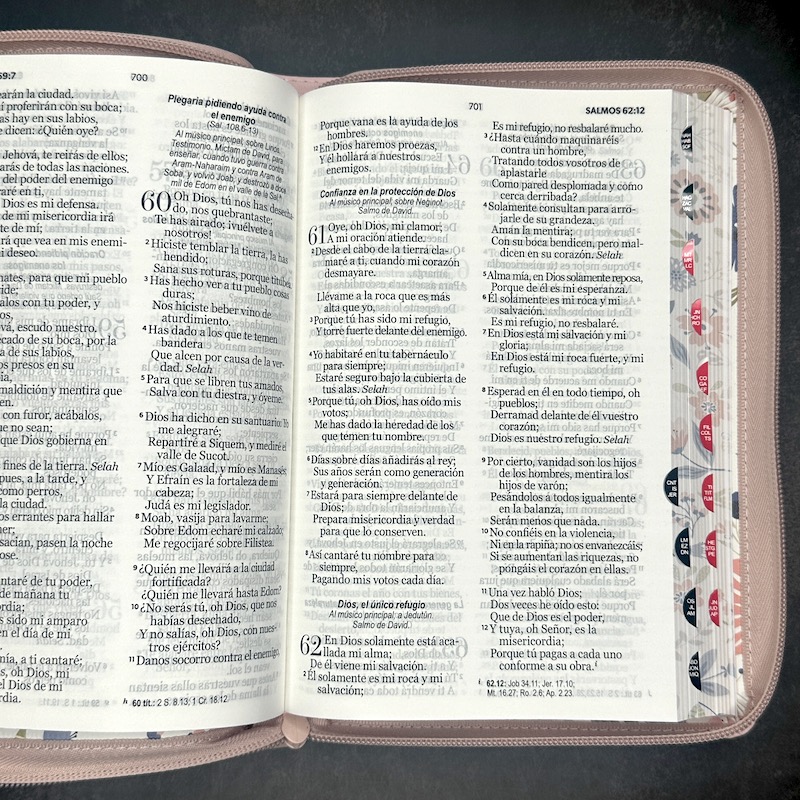 59:7
700
earán la ciudad.
í proferirán con su boca;
as hay en sus labios,
e dicen: ¿Quién oye?
Jehová, te reirás de ellos;
arás de todas las naciones.
del poder del enemigo
raré en ti,
Dios es mi defensa.
de mi misericordia irá
te de mí;
rá que vea en mis enemi-
i deseo.
nates, para que mi pueblo
ide;
alos con tu poder, y
os,
vá, escudo nuestro.
ecado de su boca, por la
a de sus labios,
os presos en su
ia,
maldición y mentira que
en.
con furor, acábalos,
que no sean;
que Dios gobierna en
fines de la tierra. Selah
pues, a la tarde, y
como perros,
la ciudad.
os errantes para hallar
ner;
sacían, pasen la noche
ose.
antaré de tu poder,
de mañana tu
ordia;
s sido mi amparo
en el día de mi
.
mía, a ti cantaré;
s, oh Dios, mi
el Dios de mi
rdia.
Plegaria pidiendo ayuda contra
el enemigo
(Sal. 108.6-13)
Al músico principal; sobre Lirios.
Testimonio. Mictam de David, para
enseñar, cuando tuvo guerra contra
Aram-Naharaim y contra Aram de
Soba, y volvió Joab, y destrozó a doce
mil de Edom en el valle de la Sal.
60 Oh Dios, tú nos has desecha
do, nos quebrantaste;
Te has airado; ¡vuélvete a
nosotros!
2 Hiciste temblar la tierra, la has
hendido;
Sana sus roturas, porque titubea.
3 Has hecho ver a tu pueblo cosas
duras;
Nos hiciste beber vino de
aturdimiento.
4 Has dado a los que te temen
bandera
Que alcen por causa de la ver-
dad. Selah
5 Para que se libren tus amados,
Salva con tu diestra, y óyeme.
6 Dios ha dicho en su santuario: Yo
me alegraré;
Repartiré a Siquem, y mediré el
valle de Sucot.
7 Mío es Galaad, y mío es Manasés;
Y Efraín es la fortaleza de mi
cabeza;
Judá es mi legislador.
8 Moab, vasija para lavarme;
Sobre Edom echaré mi calzado;
Me regocijaré sobre Filistea.
9 ¿Quién me llevará a la ciudad
fortificada?
¿Quién me llevará hasta Edom?
10 ¿No serás tú, oh Dios, que nos
habías desechado,
Y no salías, oh Dios, con nues-
tros ejércitos?
11 Danos socorro contra el enemigo,
h 60 tít.: 2 S. 8.13; 1 Cr. 18.12.
701
SALMOS 62:12
Porque vana es la ayuda de los
hombres.
12 En Dios haremos proezas,
Y él hollará a nuestros
enemigos.
Confianza en la protección de Dios
Al músico principal; sobre Neginot.
Salmo de David.
61 Oye, oh Dios, mi clamor;
A mi oración atiende.
2 Desde el cabo de la tierra cla-
maré a ti, cuando mi corazón
desmayare.
Llévame a la roca que es más
alta que yo,
3 Porque tú has sido mi refugio,
Y torre fuerte delante del enemigo.
4 Yo habitaré en tu tabernáculo
para siempre;
Estaré seguro bajo la cubierta de
tus alas. Selah
5 Porque tú, oh Dios, has oído mis
votos;
Me has dado la heredad de los
que temen tu nombre.
6 Días sobre días añadirás al rey;
Sus años serán como generación
y generación.
7 Estará para siempre delante de
Dios;
Prepara misericordia y verdad
para que lo conserven.
8 Así cantaré tu nombre para
siempre,
Pagando mis votos cada día.
Dios, el único refugio
Al músico principal; a Jedutún.
Salmo de David.
62 En Dios solamente está aca-
llada mi alma;
De él viene mi salvación.
2 Él solamente es mi roca y mi
salvación;
Es mi refugio, no resbalaré mucho.
3 ¿Hasta cuándo maquinaréis
contra un hombre,
Tratando todos vosotros de
aplastarle
Como pared desplomada y como
cerca derribada?
4 Solamente consultan para arro-
jarle de su grandeza.
Aman la mentira;
Con su boca bendicen, pero mal-
dicen en su corazón. Selah
5 Alma mía, en Dios solamente reposa,
Porque de él es mi esperanza.
6 Él solamente es mi roca y mi
salvación.
Es mi refugio, no resbalaré.
7 En Dios está mi salvación y mi
gloria;
En Dios está mi roca fuerte, y mi
refugio.
8 Esperad en él en todo tiempo, oh
pueblos;
Derramad delante de él vuestro
corazón;
Dios es nuestro refugio. Selah
9 Por cierto, vanidad son los hijos
de los hombres, mentira los
hijos de varón;
Pesándolos a todos igualmente
en la balanza,
Serán menos que nada.
10 No confiéis en la violencia,
Ni en la rapiña; no os envanezcáis;
Si se aumentan las riquezas, no
pongáis el corazón en ellas.
11 Una vez habló Dios;
Dos veces he oído esto:
Que de Dios es el poder,
12 Y tuya, oh Señor, es la
misericordia;
Porque tú pagas a cada uno
conforme a su obra. i
i 62.12: Job 34.11; Jer. 17.10;
Mt. 16.27; Ro. 2.6; Ap. 2.23.
MR
LC
JN
HCH
RO
CO
GA
EF
FIL
COL
TS
CNT
IS
JER
TI
TIT
FLM
LM
EZ
DN
HE
STG
PE
OS
JL
AM
JN
JUD
AP
ABD
JON
MIQ